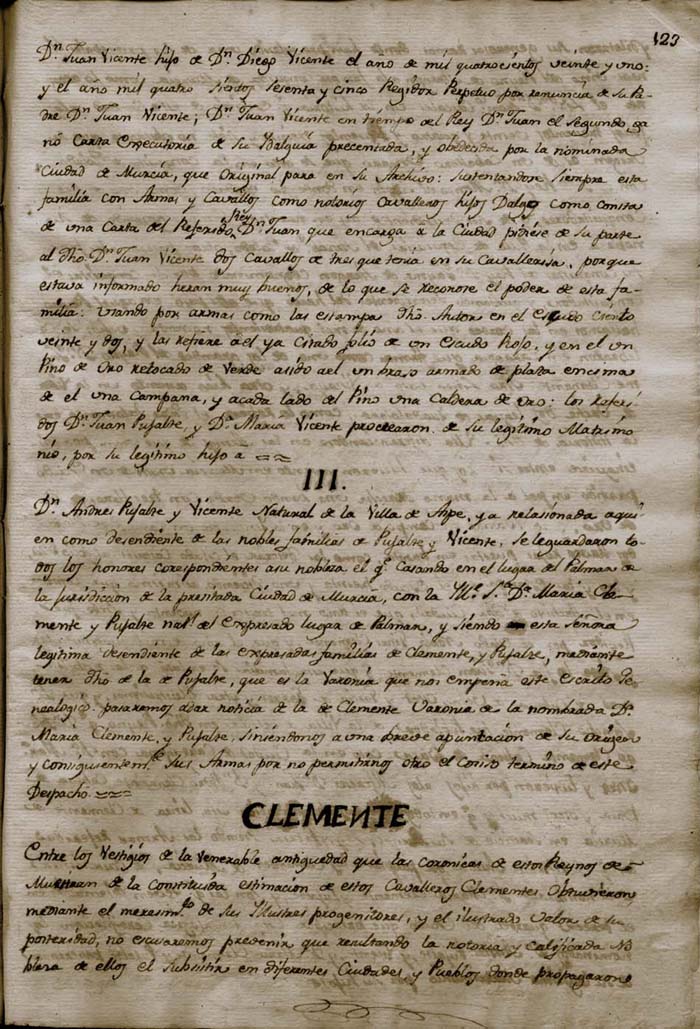 123
Dn. Juan Vicente hijo de Dn. Diego Vicente el año de mil quatrocientos veinte y uno:
y el año mil quatro sientos sesenta y cinco Regidor Perpetuo por renuncia de su Pa-
dre Dn. Juan Vicente; Dn. Juan Vicente en tiempo del Rey Dn. Juan el segundo ga
nó Carta Executoria de su Ydalguia precentada, y obedecida por la nominada
Ciudad de Murcia, que Original para en su Archivo: sustentandose siempre esta
familia con Armas y Cavallos como notorios Cavalleros hijos Dalgo como consta
de una Carta del Referido Rey Dn. Juan que encarga à la Ciudad pidiese de su parte
al Dho. Dn. Juan Vicente dos Cavallos de tres que tenia en su Cavallerissa, porque
estava informado heran muy buenos, de lo que se reconose el poder de esta fa-
milia: Usando por armas como las estampa Dho. Autor en el Escudo ciento
veinte y dos, y las refiere àel ya Citado folio de un escudo Rojo, y en el un
Pino de Oro retocado de Verde asido àel un braso armado de plata encima
de el una Campana, y acada lado del Pino una Caldera de Oro: los referi
dos Dn. Juan Pujalte, y Da. Maria Vicente procrearon de su legitimo Matrimo
nio, por su legitimo hijo à
III.
Dn. Andres Pujalte y Vicente Natural de la Villa de Aspe, ya relasionada aqui
en como desendiente de las nobles familias de Pujalte y Vicente, se leguardaron to-
dos los honores corespondientes asu nobleza el qe. Casando en el lugar del Palmar de
la jurisdiccion de la presitada Ciudad de Murcia, con la Sa. Da. Maria Cle-
mente y Pujalte natl. del expresado lugar de Palmar, y siendo esta señora
legitima desendiente de las expresadas familias de Clemente, y Pujalte, mediante
tener Dho de la de Pujalte, que es la Varonia que nos empeña este Escrito Ge
nealogico. pasaremos adar noticia de la de Clemente Varonia de la nombrada Da.
Maria Clemente, y Pujalte, siniéndonos a una breve apuntacion de su Origen
y consiguientemte. sus Armas por no permitirnos otro el Corto termino de este
Despacho
CLEMENTE
Entre los Vestigios de la Venerable antiguedad que las coronicas de estos Reynos de-
Muestran de la Constituida estimacion de estos Cavalleros Clementes Obtuvieron
mediante el meresimto. de sus Yllustres progenitores, y el ilustrado Valor de su
posteridad, no escusaremos prevenir que resultando la notoria y calificada No
bleza de ellos el subsistir en diferentes Ciudades, y Pueblos donde propagaron